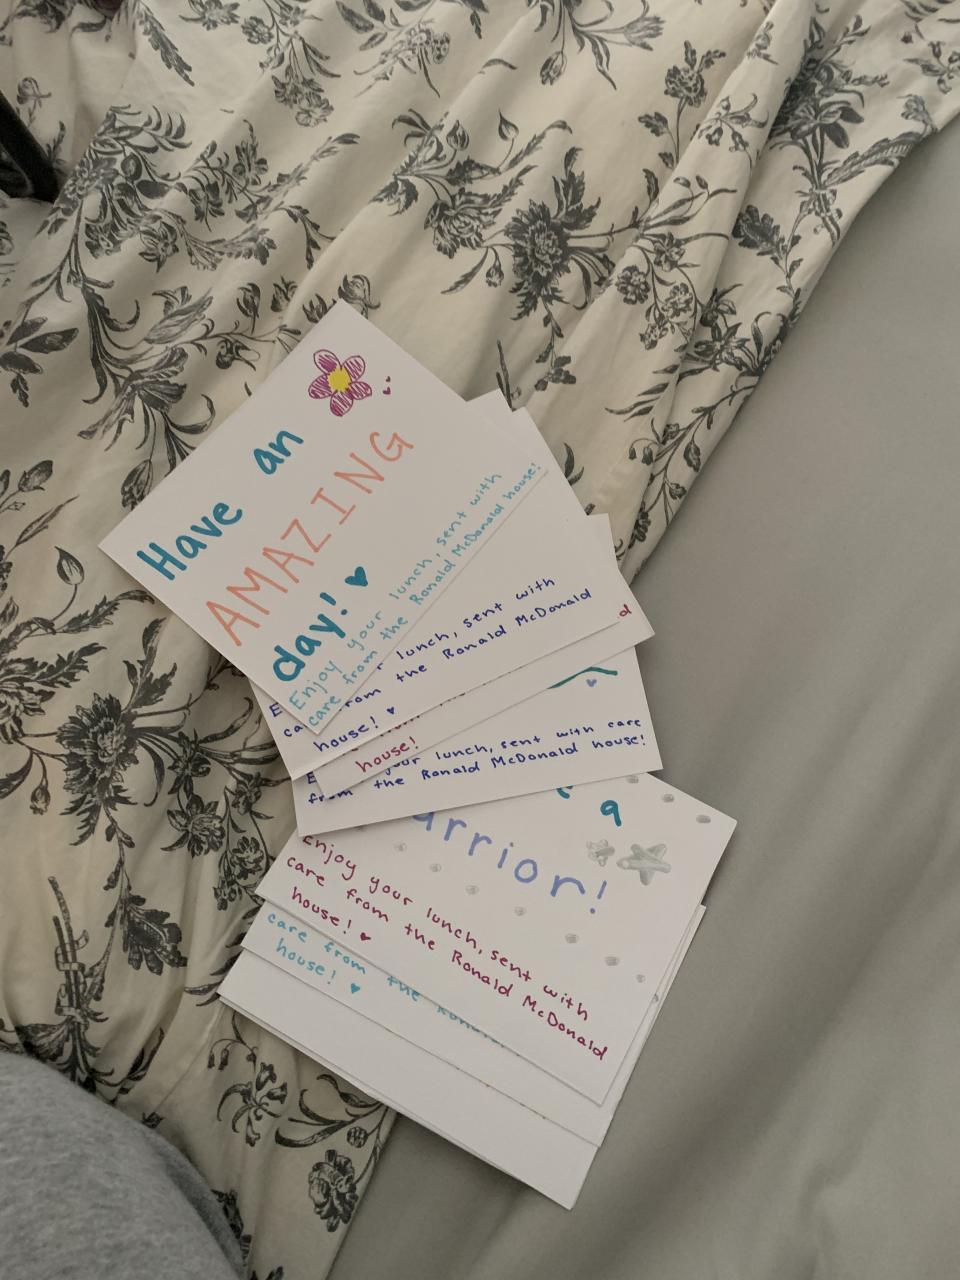 Have an
AMAZING
day!
Enjoy your lunch, sent with
care from the Ronald McDonald house!
lunch, sent with
from the Ronald McDonald
house!
d
house!
your lunch, sent with care
from the Ronald McDonald house!
a
arrior!
Enjoy your lunch, sent with
care from the Ronald McDonald
house!
care from the
house!